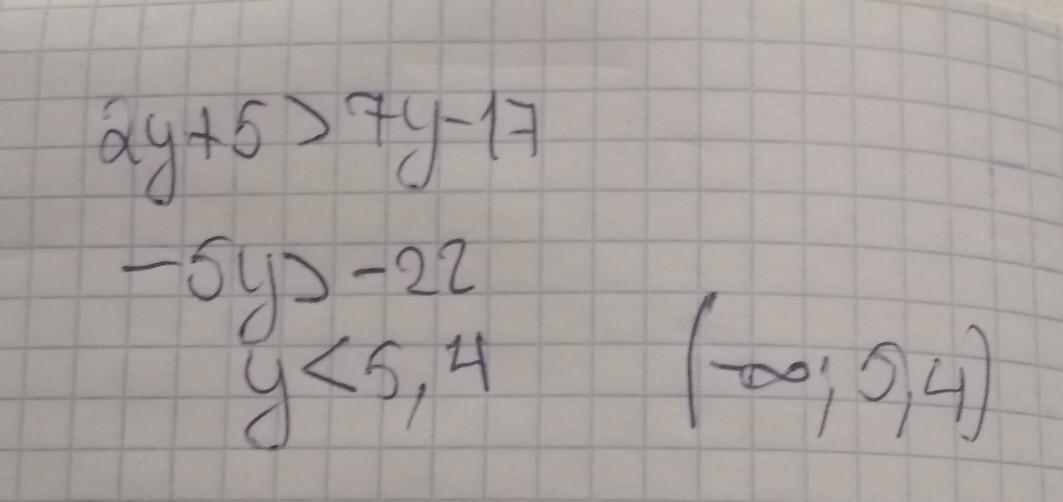 2y+5>7y-17
-5y>-22
y<5,4 (-∞; 5,4)